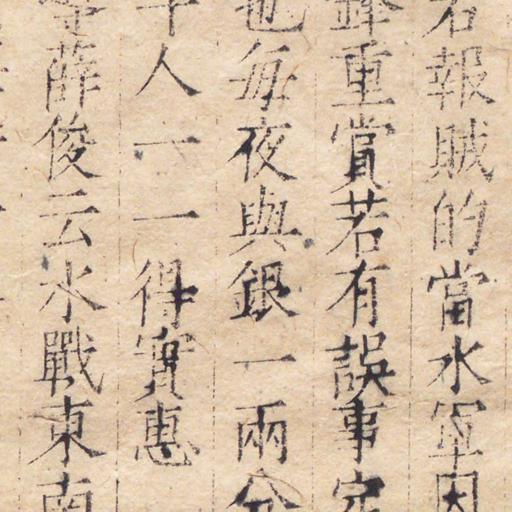 若報賊的當水軍因
鋒重賞若有誤事定
也每夜與銀一兩分
千人一一得實惠
薛俊云水戰東南